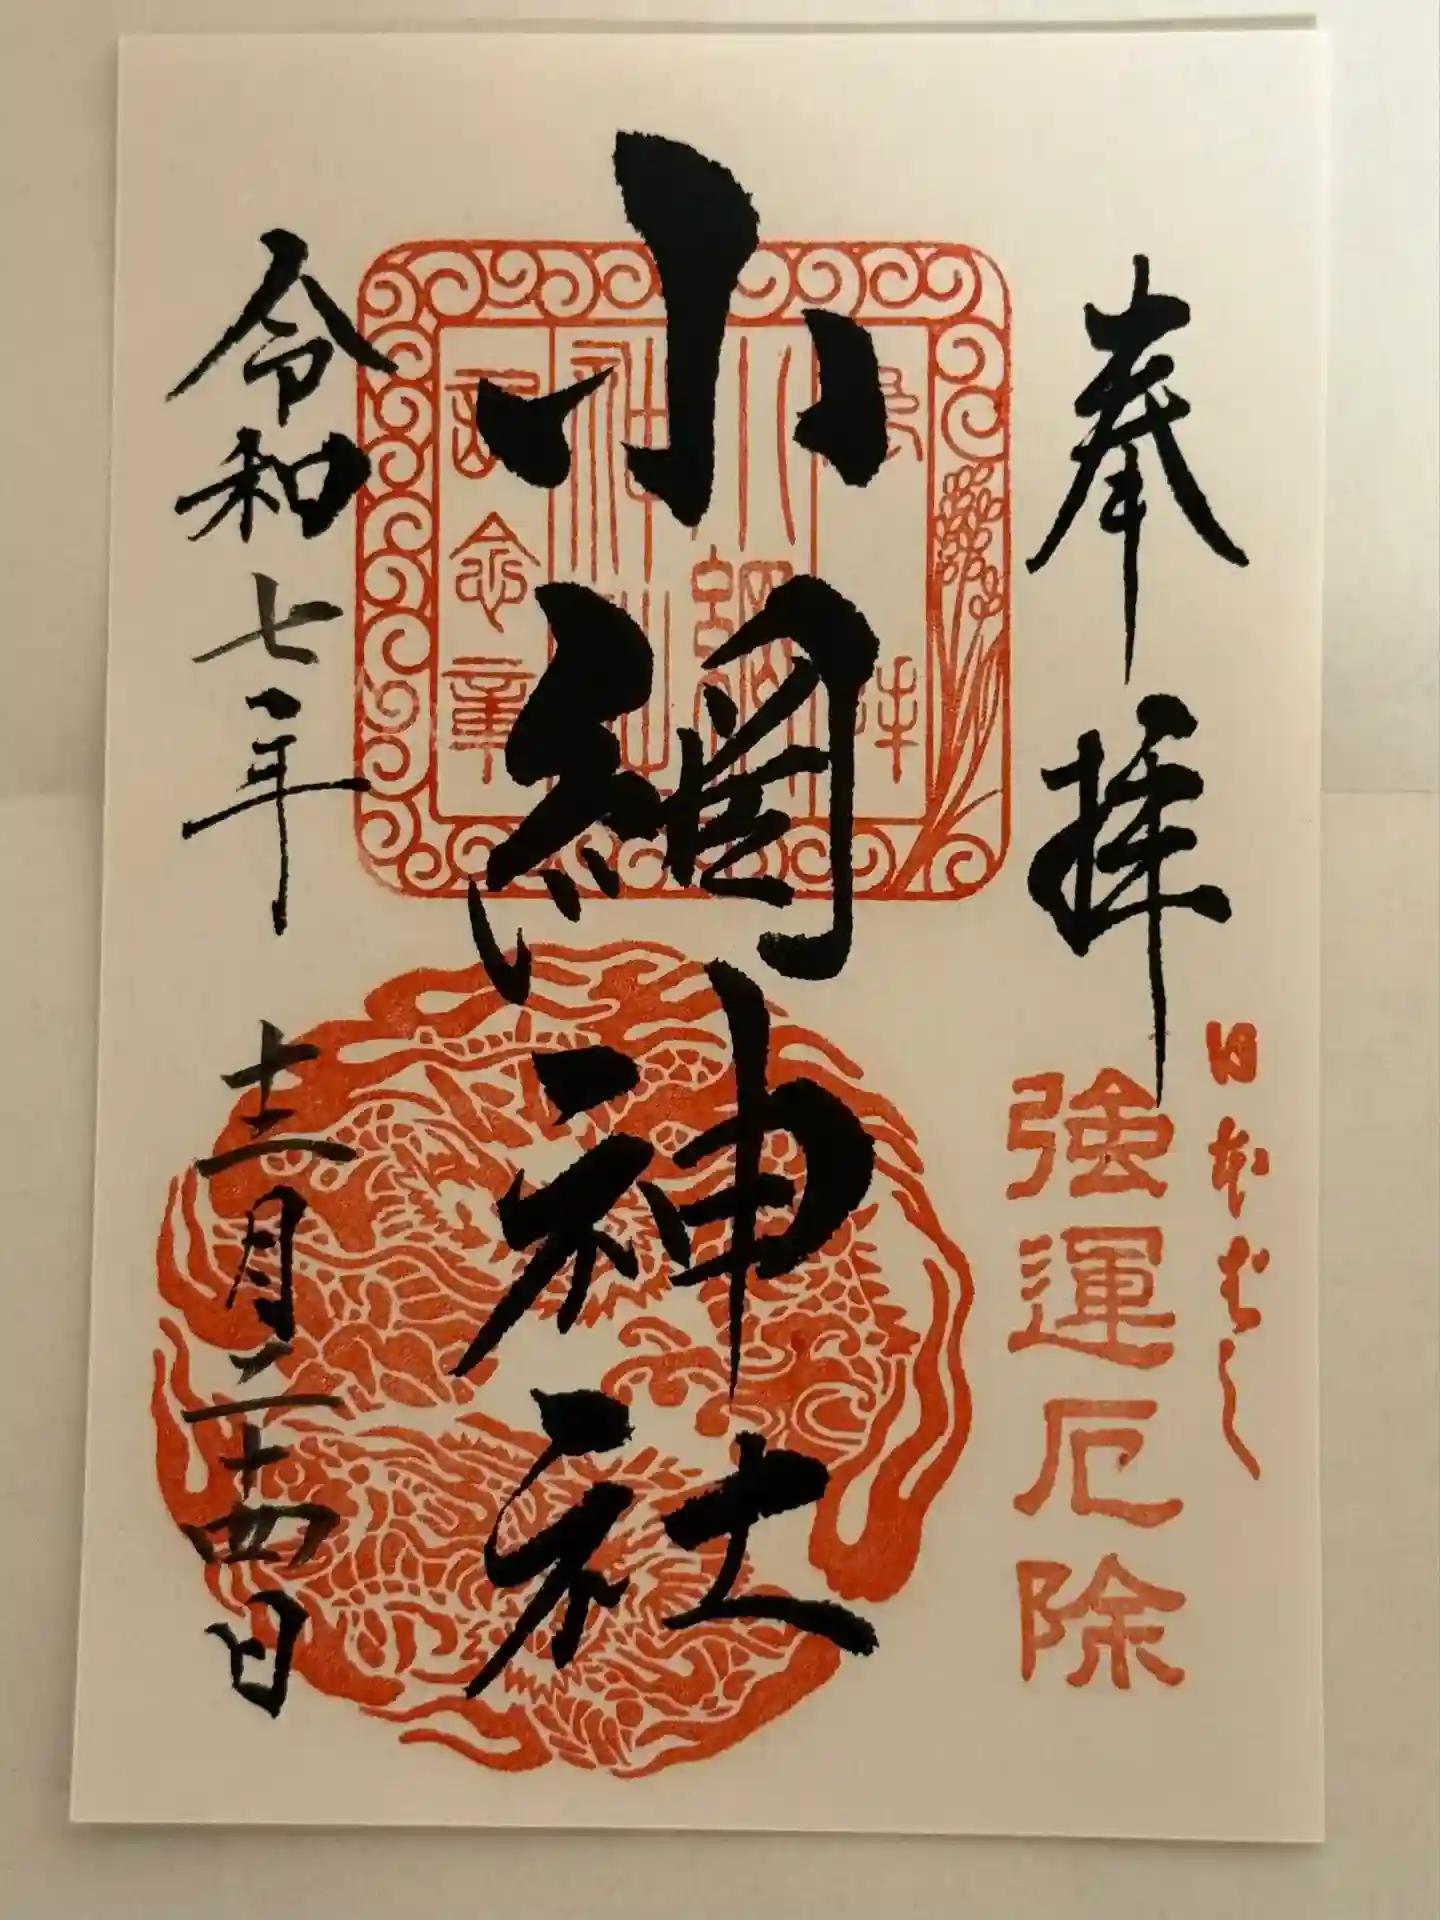 奉拝
日本ばし
強運厄除
小網神社
参拝
小網
神社
記念章
令和七年 十二月二十四日